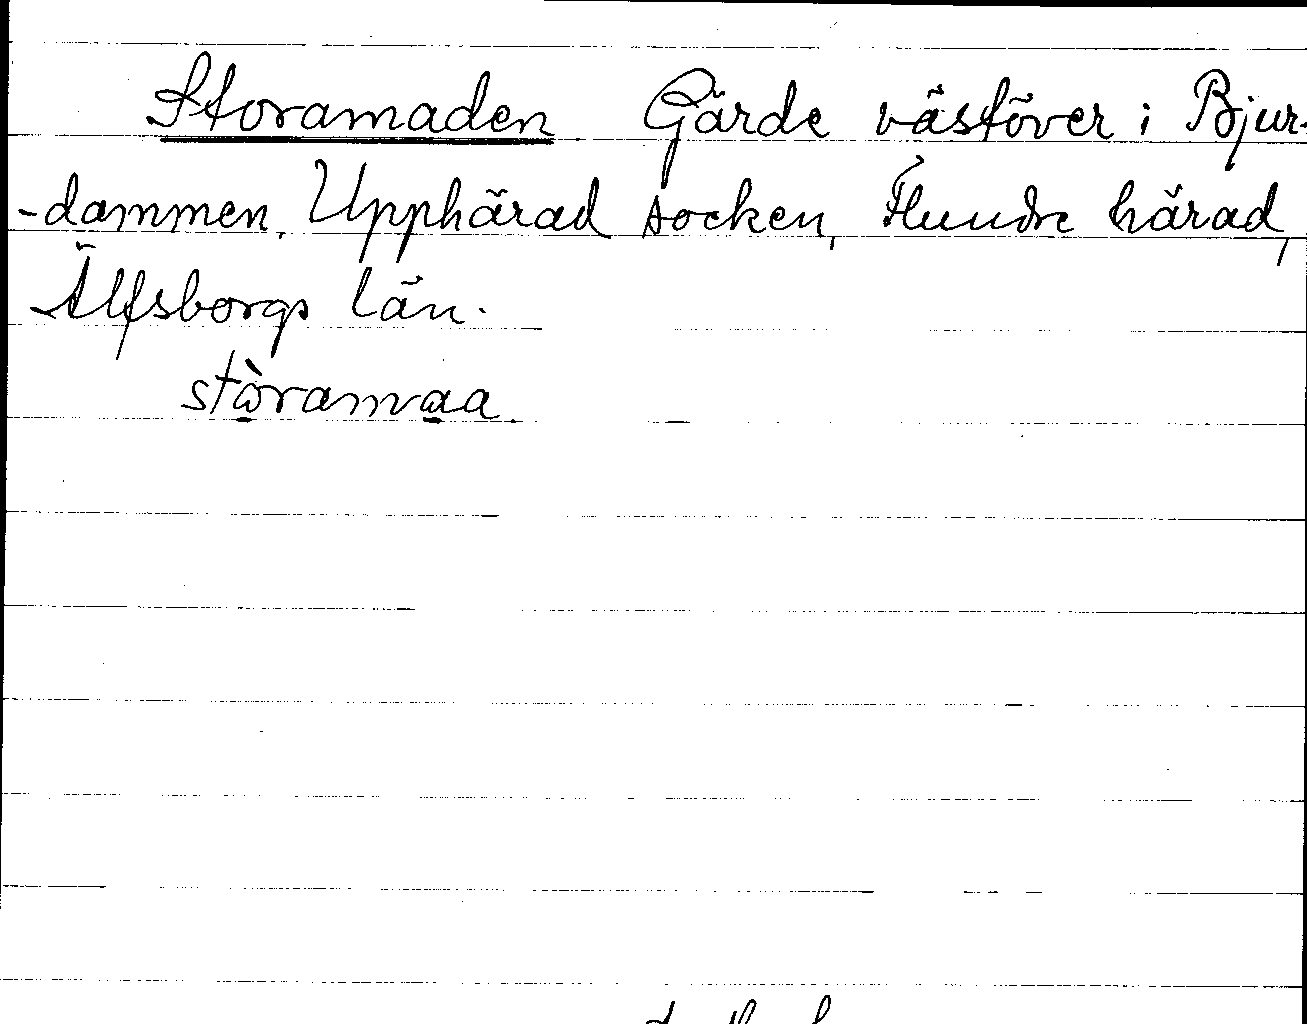 Storamaden Gärde västöver i Bjur-
-dammen, Upphärad socken, Flundre härad,
Älfsborgs län.
stòramaa